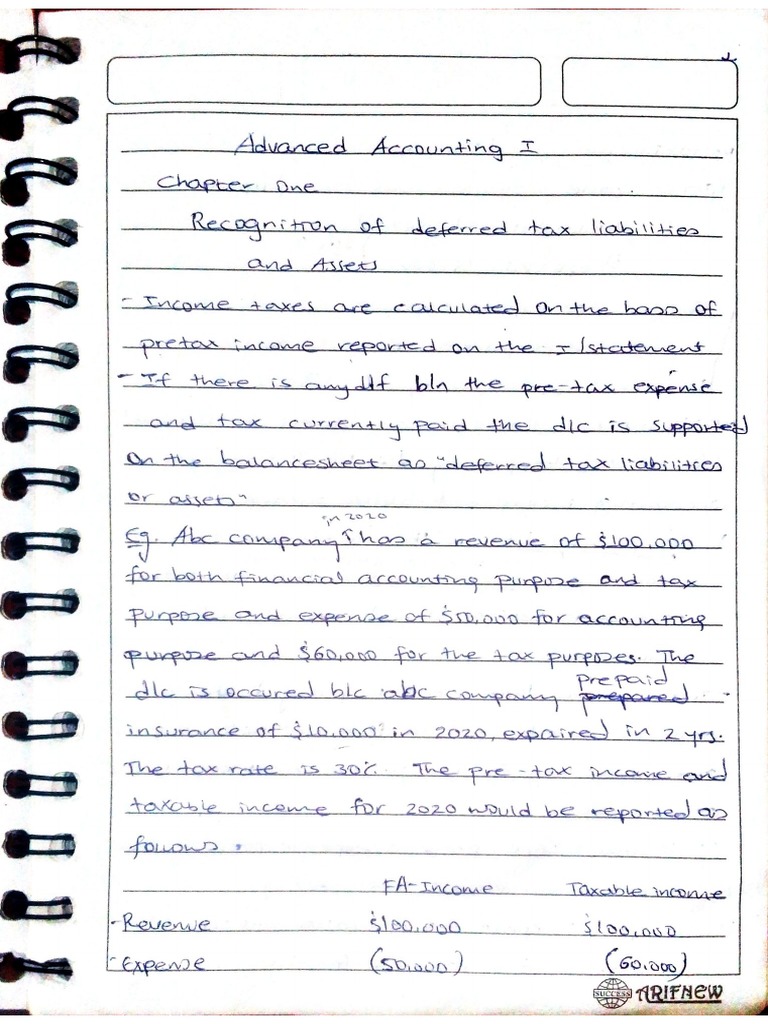 Advanced Accounting I
Chapter One
Recognition of deferred tax liabilities
and Assets
- Income taxes are calculated on the basis of
pretax income reported on the I/statement
- If there is any d/f b/n the pre-tax expense
and tax currently paid the d/c is supported
on the balancesheet as "deferred tax liabilities
or assets"
in 2020
Eg. Abc company has a revenue of $100,000
for both financial accounting purpose and tax
purpose and expense of $50,000 for accounting
purpose and $60,000 for the tax purposes. The
prepaid
d/c is occured b/c abc company prepared
insurance of $10,000 in 2020, expaired in 2 yrs.
The tax rate is 30% The pre-tax income and
taxable income for 2020 would be reported as
follows:
FA-Income Taxable income
- Revenue $100,000 $100,000
- Expense (50,000) (60,000)
SUCCESS ARIFNEW